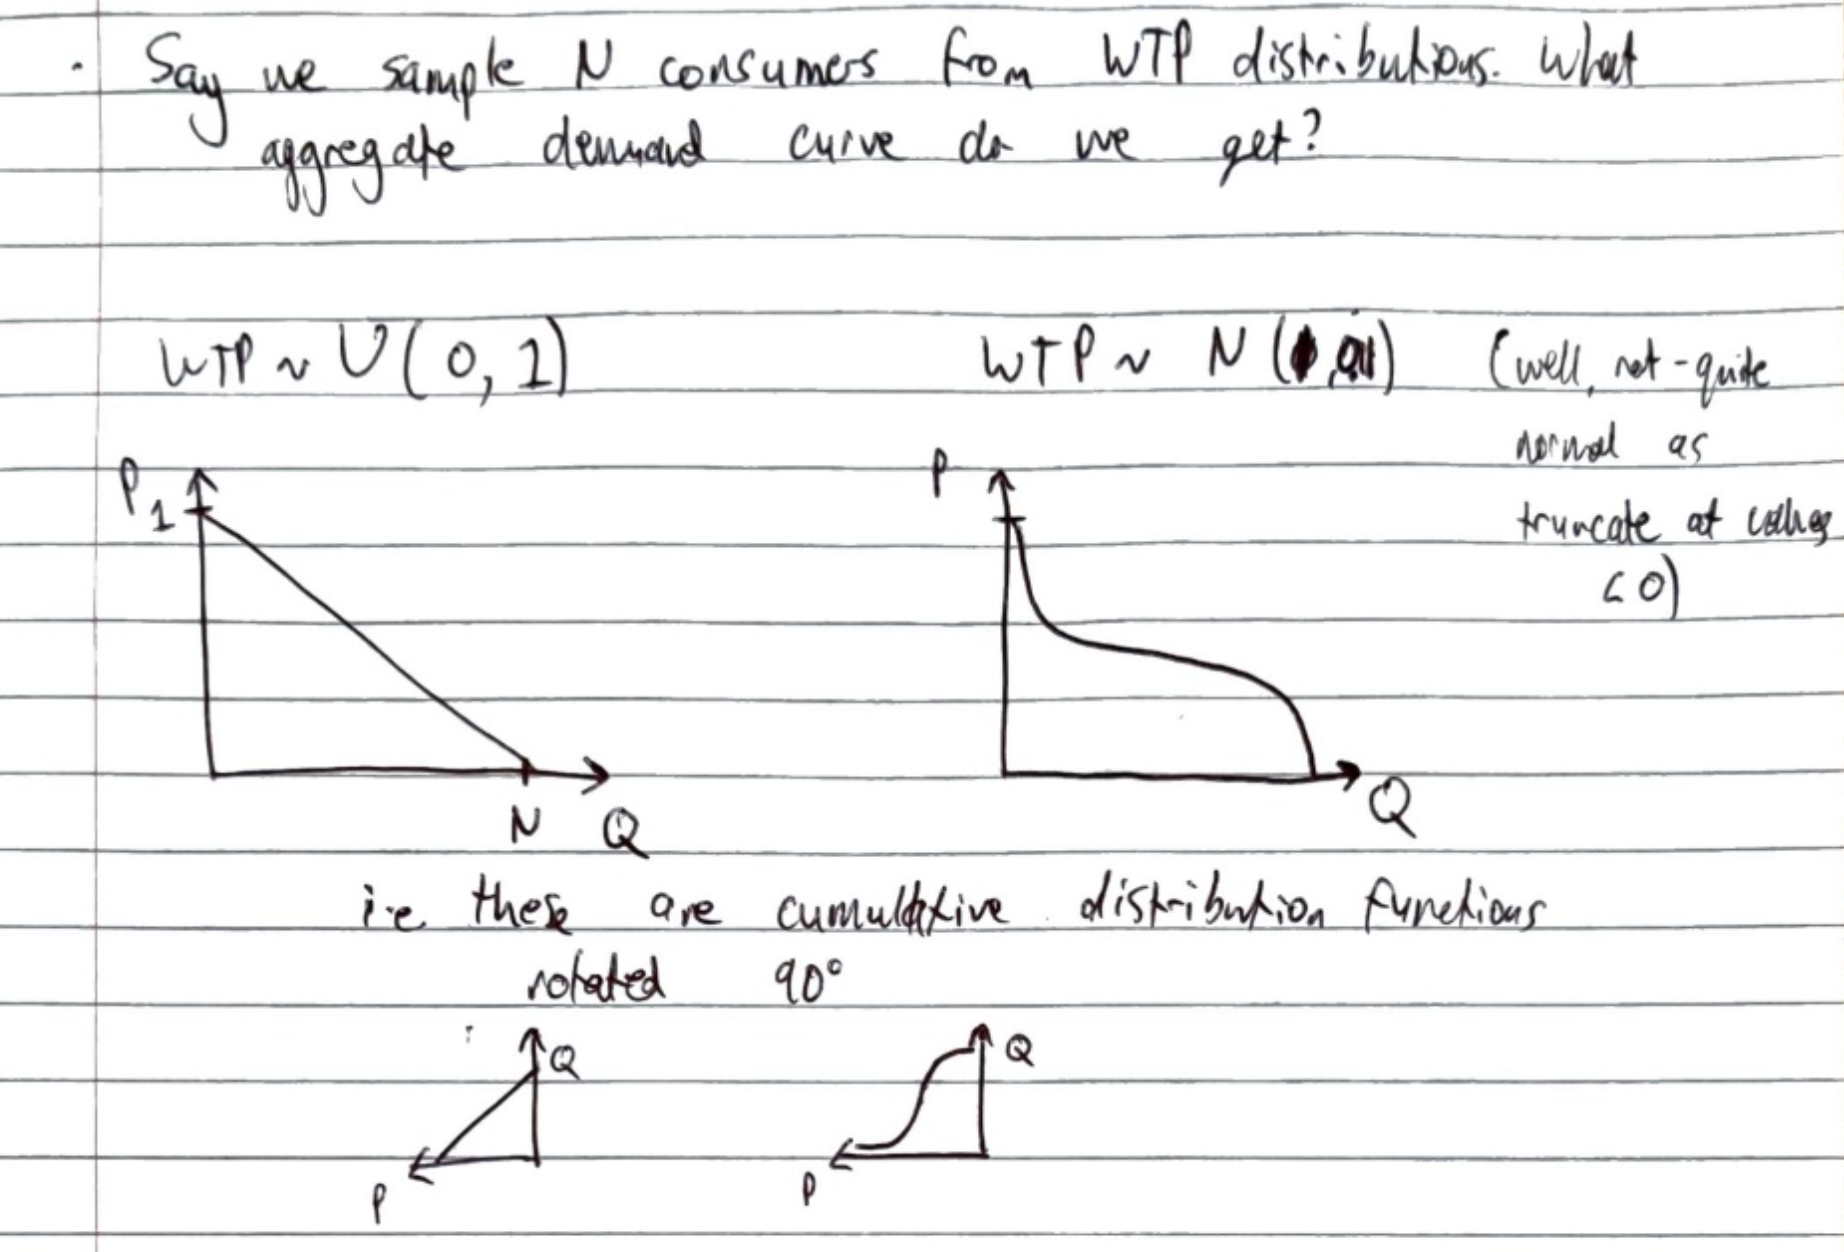 · Say we sample N consumers from WTP distributions. What
aggregate demand curve do we get?
WTP ~ U(0, 1)
WTP ~ N( (well, not-quite
normal as
truncate at values
< 0)
P
1
N Q
P
Q
i.e these are cumulative distribution functions
rotated 90°
Q
P
Q
P